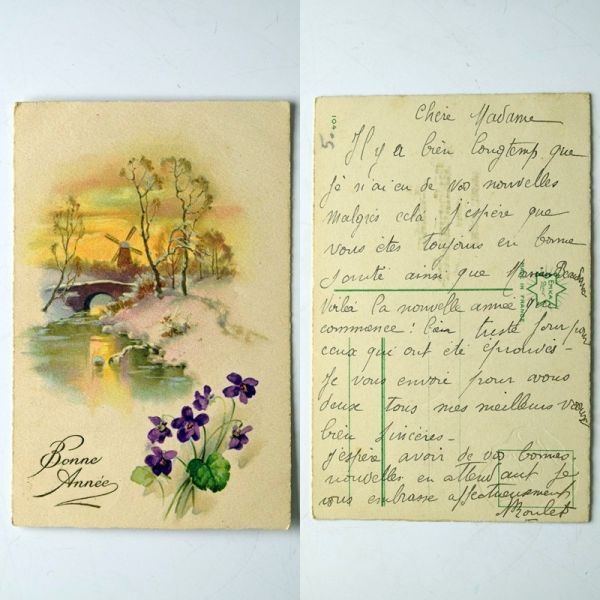 Bonne
Année
1040
5.-
Chère Madame
Il y a bien longtemp que
Je n'ai eu de vos nouvelles
malgrès celà j'espère que
vous êtes toujours en bonne
santé ainsi que
Voilà la nouvelle année
commence! bien triste jour pour
ceux qui ont été éprouvés -
Je vous envoie pour vous
deux tous mes meilleurs vœux
bien sincères -
J'espère avoir de vos bonnes
nouvelles en attendant Je
vous embrasse affectueusement
MADE IN FRANCE